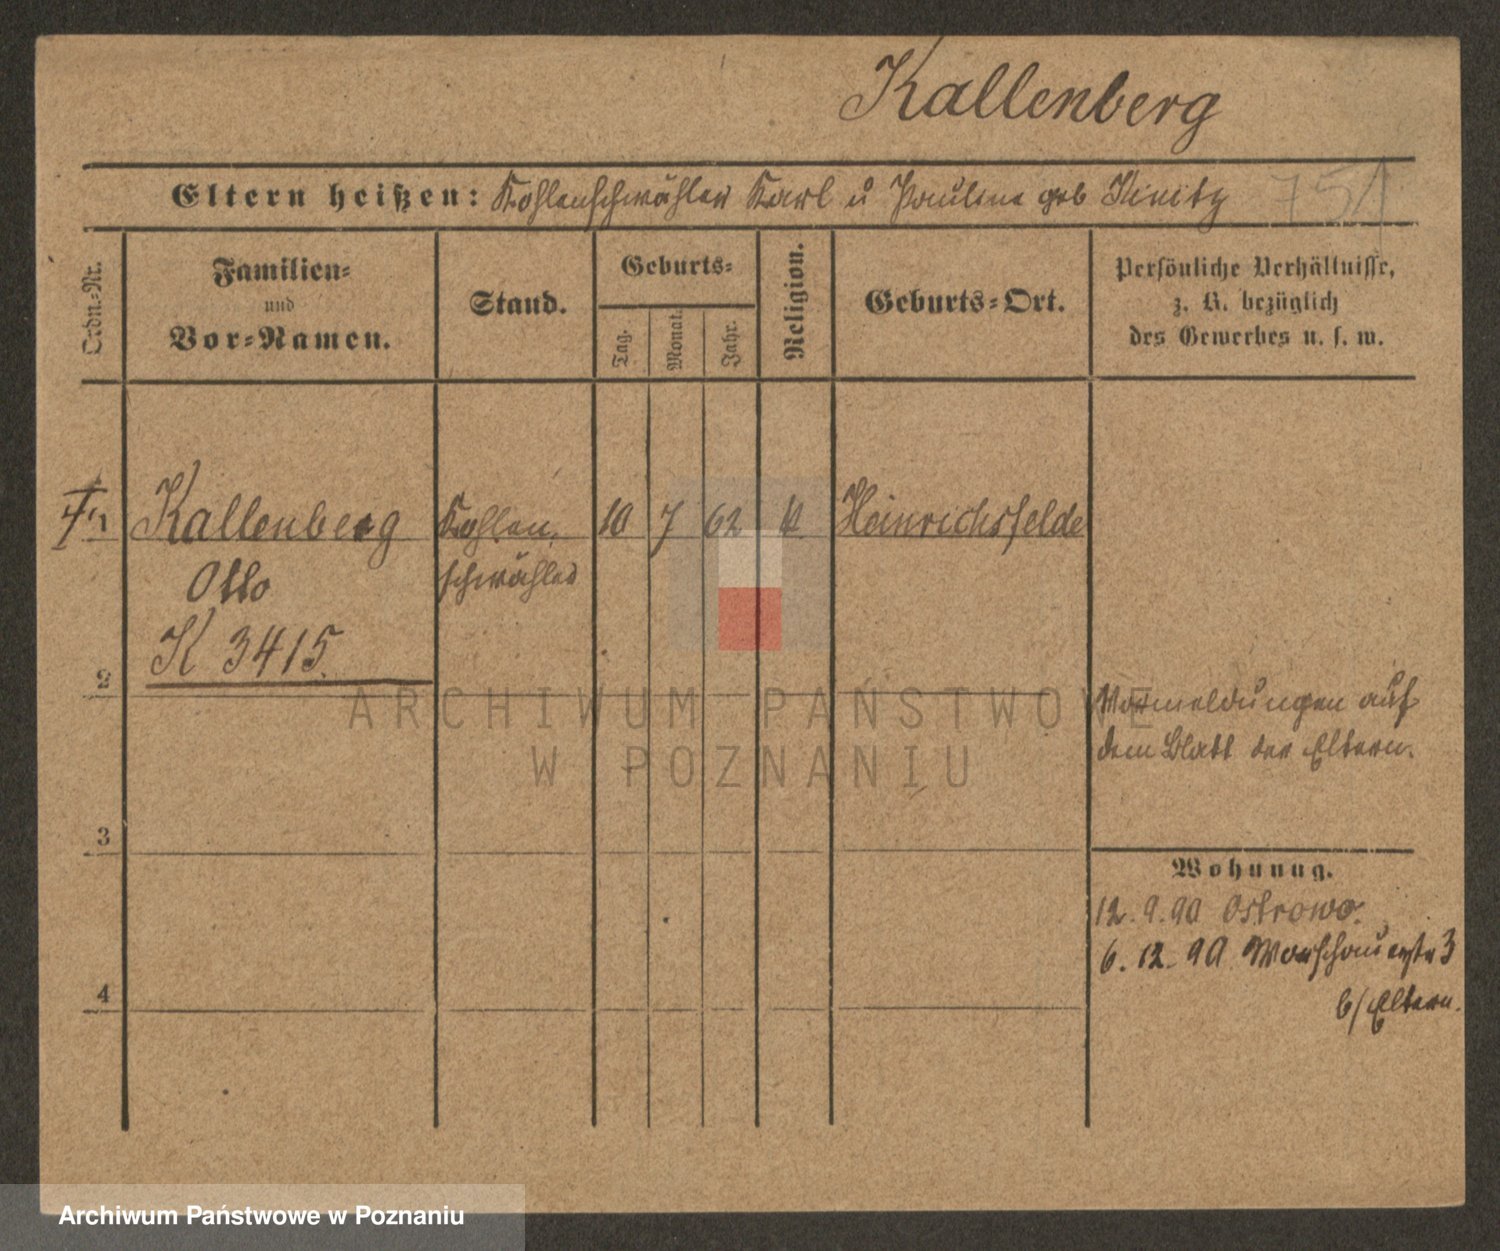 Kallenberg
Eltern heißen: Kohlenschwähler Karl u Pauline geb Kinitz 751
Ordn.-Nr.
Familien-
und
Vor-Namen.
Stand.
Geburts-
Tag.
Monat.
Jahr.
Religion.
Geburts-Ort.
Persönliche Verhältnisse,
z. B. bezüglich
des Gewerbes u. s. w.
1 Kallenberg Kohlen 10 7 62 k Heinrichsfelde
Otto schwähler
K 3415.
2
Vormeldungen auf
dem Blatt der Eltern.
ARCHIWUM PAŃSTWOWE
W POZNANIU
3
Wohnung.
12. 9. 90 Ostrowo.
6. 12. 90 Warschauerstr 3
b/Eltern.
4
Archiwum Państwowe w Poznaniu